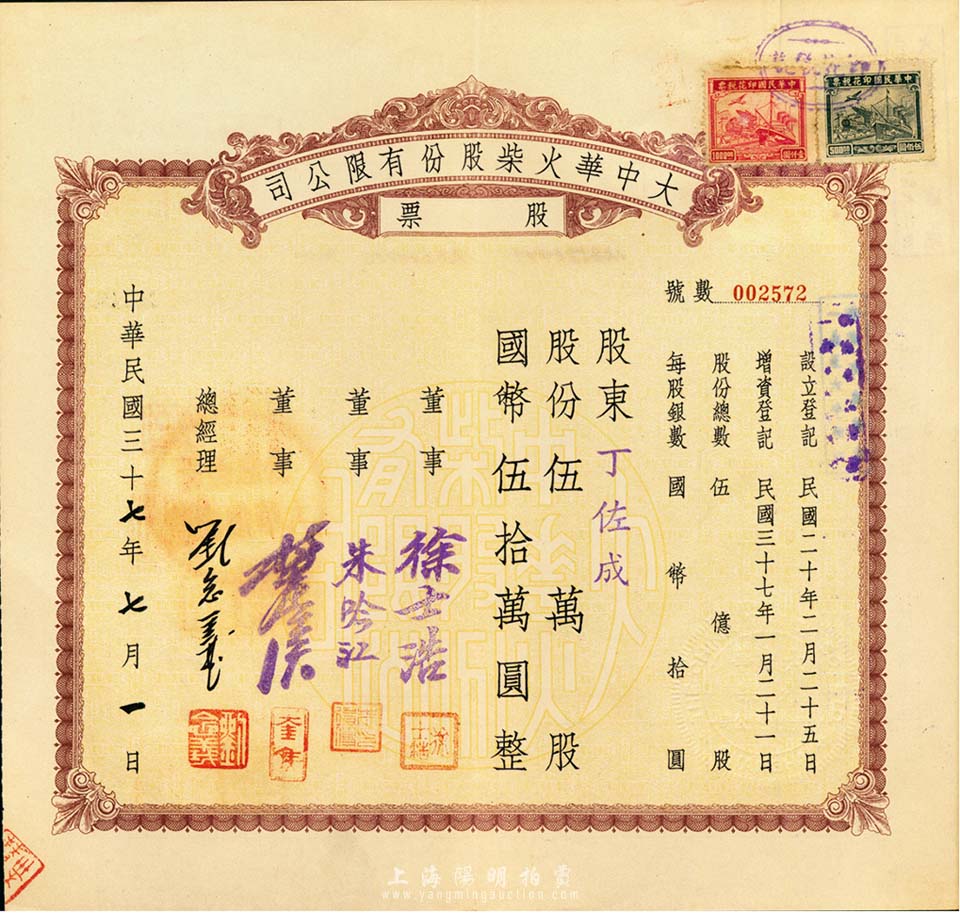 中華民國印花稅票
1000
中華民國印花稅票
伍佰圓
500
大中華火柴股份有限公司
股票
號數 002572
設立登記 民國二十年二月二十五日
增資登記 民國三十七年一月二十一日
股份總數 伍億股
每股銀數 國幣拾圓
股東 丁佐成
股份伍萬股
國幣伍拾萬圓整
董事 徐士浩
董事 朱吟江
董事
總經理 劉念義
中華民國三十七年七月一日
上海陽明拍賣
www.yangmingauction.com